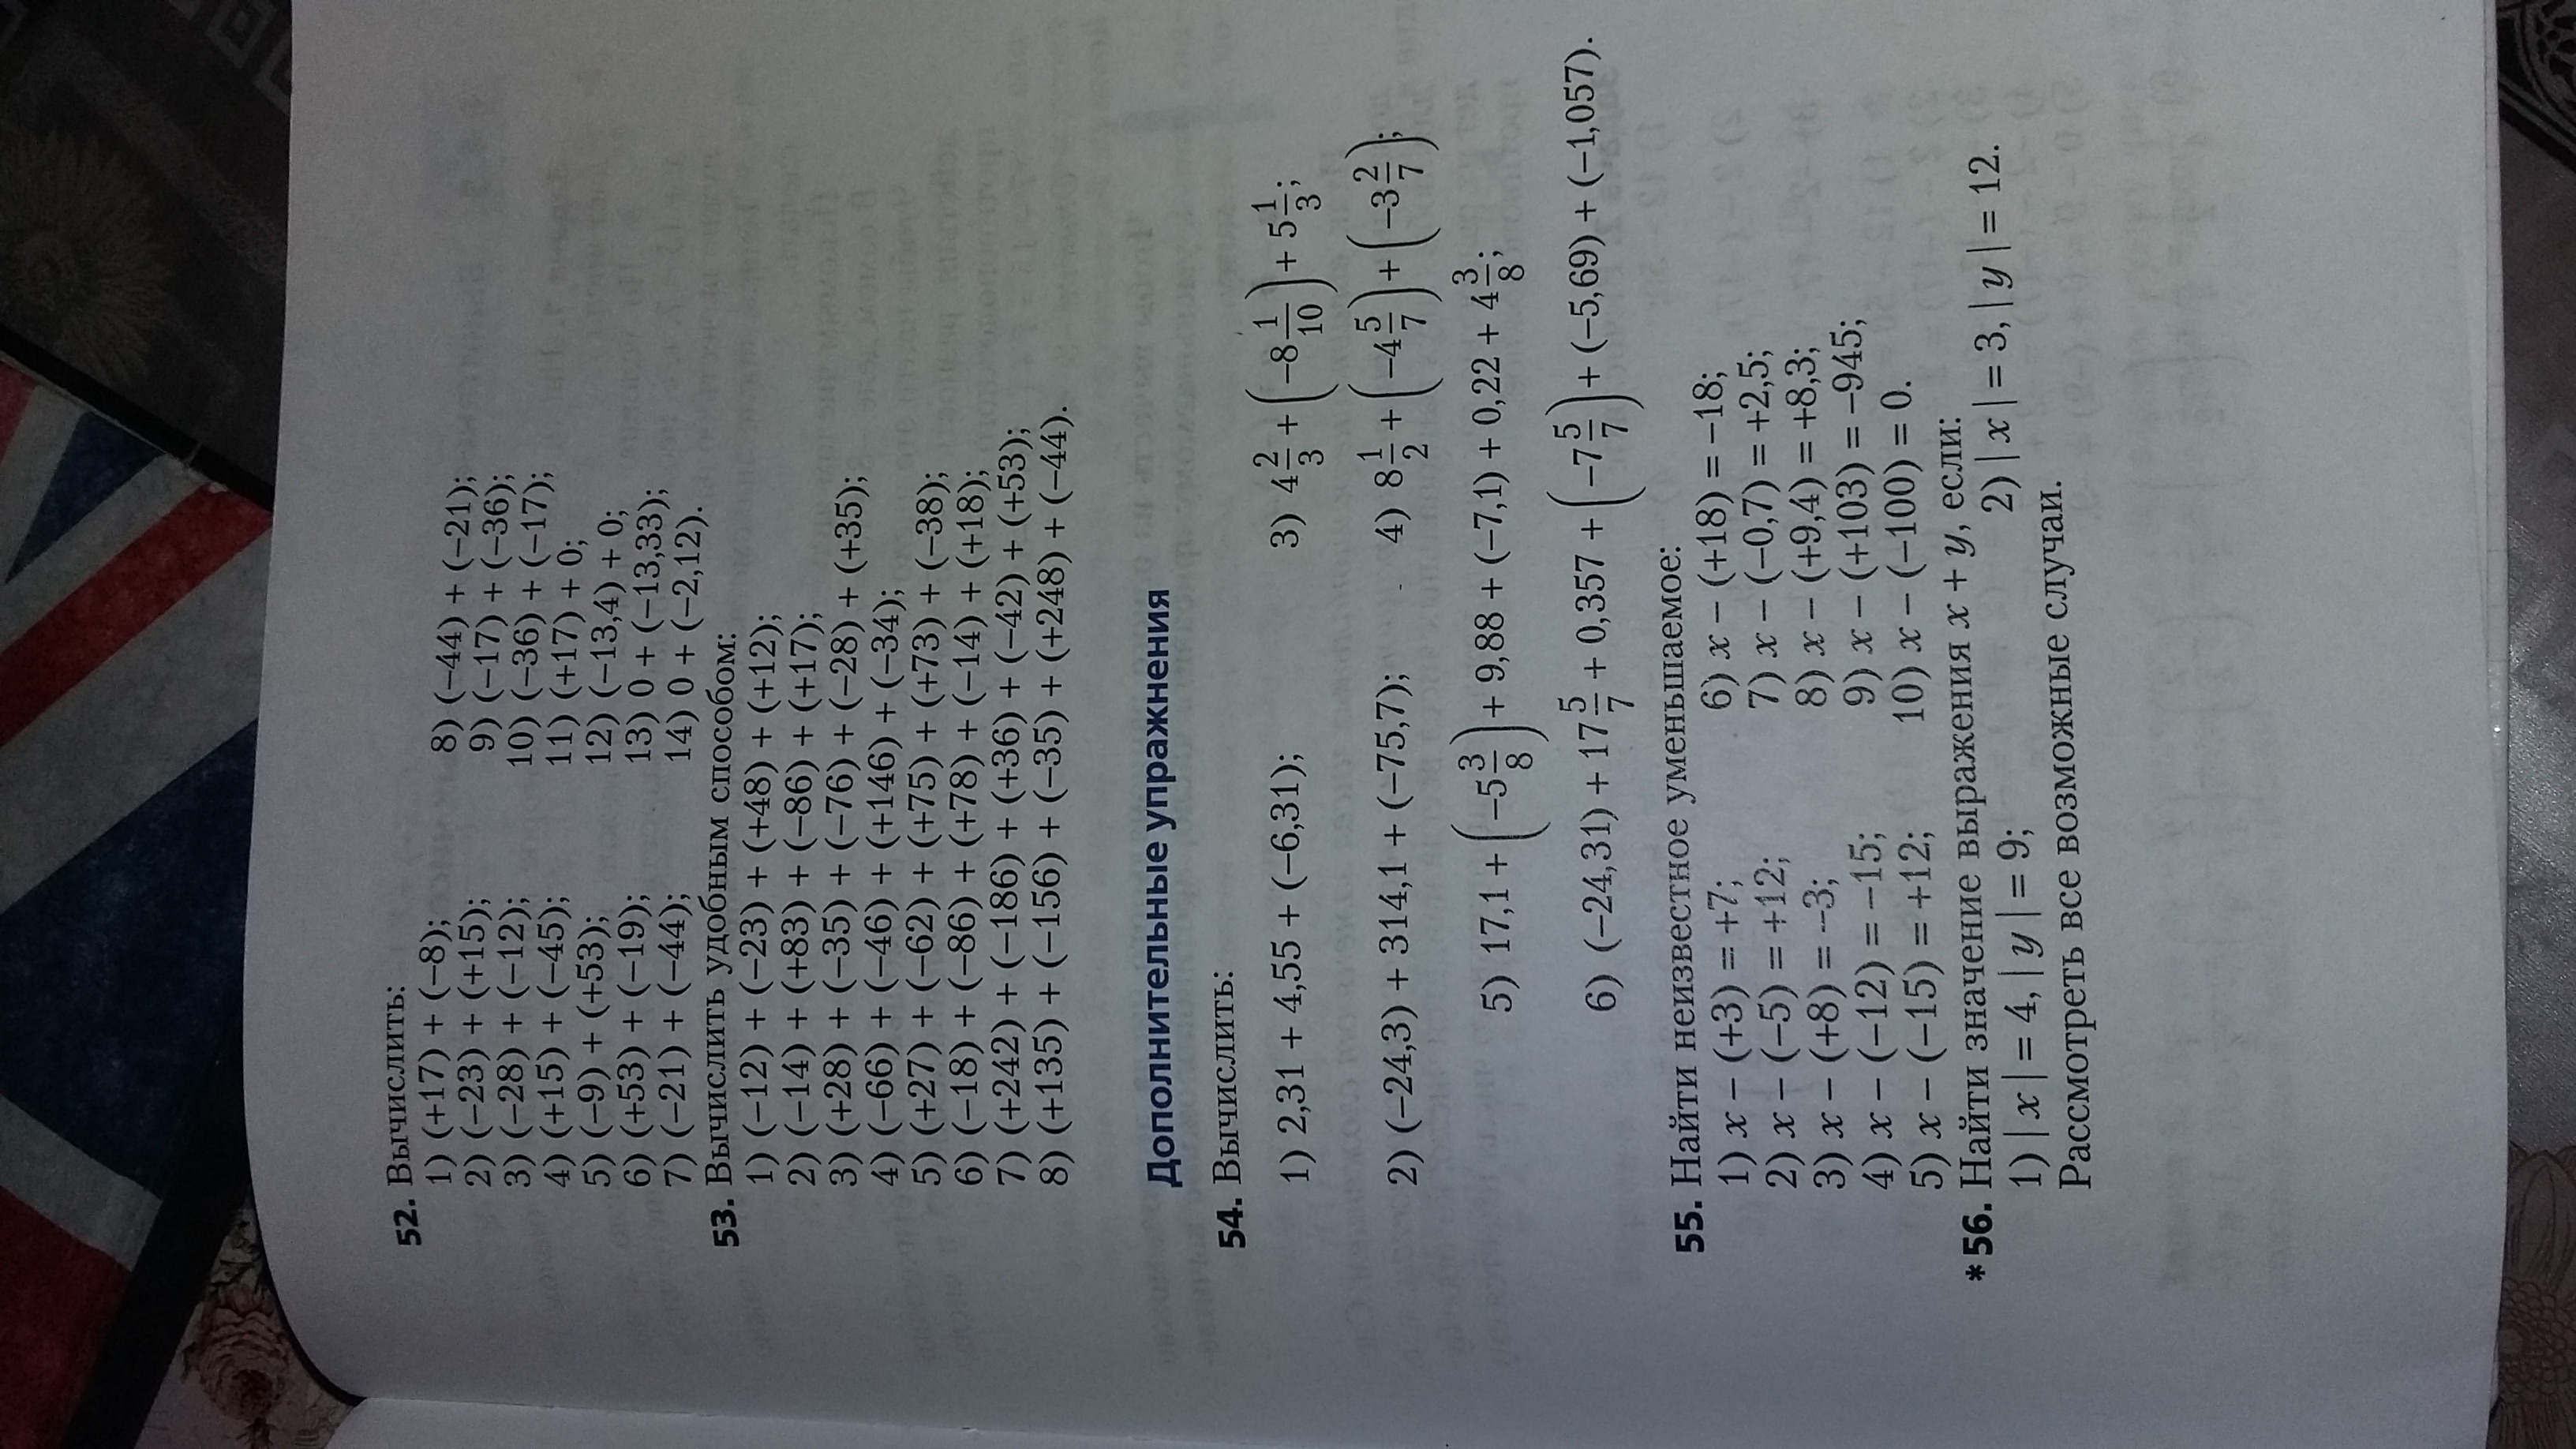 52. Вычислить:
1) (+17) + (−8); 8) (−44) + (−21);
2) (−23) + (+15); 9) (−17) + (−36);
3) (−28) + (−12); 10) (−36) + (−17);
4) (+15) + (−45); 11) (+17) + 0;
5) (−9) + (+53); 12) (−13,4) + 0;
6) (+53) + (−19); 13) 0 + (−13,33);
7) (−21) + (−44); 14) 0 + (−2,12).
53. Вычислить удобным способом:
1) (−12) + (−23) + (+48) + (+12);
2) (−14) + (+83) + (−86) + (+17);
3) (+28) + (−35) + (−76) + (−28) + (+35);
4) (−66) + (−46) + (+146) + (−34);
5) (+27) + (−62) + (+75) + (+73) + (−38);
6) (−18) + (−86) + (+78) + (−14) + (+18);
7) (+242) + (−186) + (+36) + (−42) + (+53);
8) (+135) + (−156) + (−35) + (+248) + (−44).
Дополнительные упражнения
54. Вычислить:
1) 2,31 + 4,55 + (−6,31); 3) 4 2/3 + (−8 1/10) + 5 1/3;
2) (−24,3) + 314,1 + (−75,7); 4) 8 1/2 + (−4 5/7) + (−3 2/7);
5) 17,1 + (−5 3/8) + 9,88 + (−7,1) + 0,22 + 4 3/8;
6) (−24,31) + 17 5/7 + 0,357 + (−7 5/7) + (−5,69) + (−1,057).
55. Найти неизвестное уменьшаемое:
1) x − (+3) = +7; 6) x − (+18) = −18;
2) x − (−5) = +12; 7) x − (−0,7) = +2,5;
3) x − (+8) = −3; 8) x − (+9,4) = +8,3;
4) x − (−12) = −15; 9) x − (+103) = −945;
5) x − (−15) = +12; 10) x − (−100) = 0.
*56. Найти значение выражения x + y, если:
1) |x| = 4, |y| = 9; 2) |x| = 3, |y| = 12.
Рассмотреть все возможные случаи.